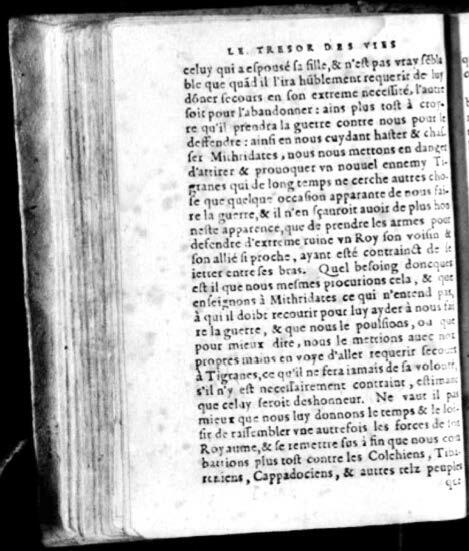 LE TRESOR DES VIES
celuy qui a espousé sa fille, & n'est pas vray sẽbla
ble que quãd il l'ira hũblement requerir de luy
dõner secours en son extreme necessité, l'autre
soit pour l'abandonner: ains plus tost à croy-
re qu'il prendra la guerre contre nous pour le
deffendre: ainsi en nous cuydant haster & chas
ser Mithridates, nous nous mettons en danger
d'attirer & prouoquer vn nouuel ennemy Ti-
granes qui de long temps ne cerche autres cho-
se que quelque occasion apparante de nous fai-
re la guerre, & il n'en sçauroit auoir de plus hon
neste apparence, que de prendre les armes pour
defendre d'extreme ruine vn Roy son voisin &
son allié si proche, ayant esté contrainct de se
ietter entre ses bras. Quel besoing doncques
est il que nous mesmes procurions cela, & que
enseignons à Mithridates ce qui n'entend pas,
à qui il doibt recourir pour luy ayder à nous fai
re la guerre, & que nous le poulsions, ou que
pour mieux dire, nous le mettions auec noz
propres mains en voye d'aller requerir secours
à Tigranes, ce qu'il ne fera iamais de sa volonté,
s'il n'y est necessairement contraint, estimant
que celuy seroit deshonneur. Ne vaut il pas
mieux que nous luy donnons le temps & le loi-
sir de rassembler vne autrefois les forces de son
Royaume, & se remettre sus à fin que nous com
battions plus tost contre les Colchiens, Tiba-
reniens, Cappadociens, & autres telz peuples
que